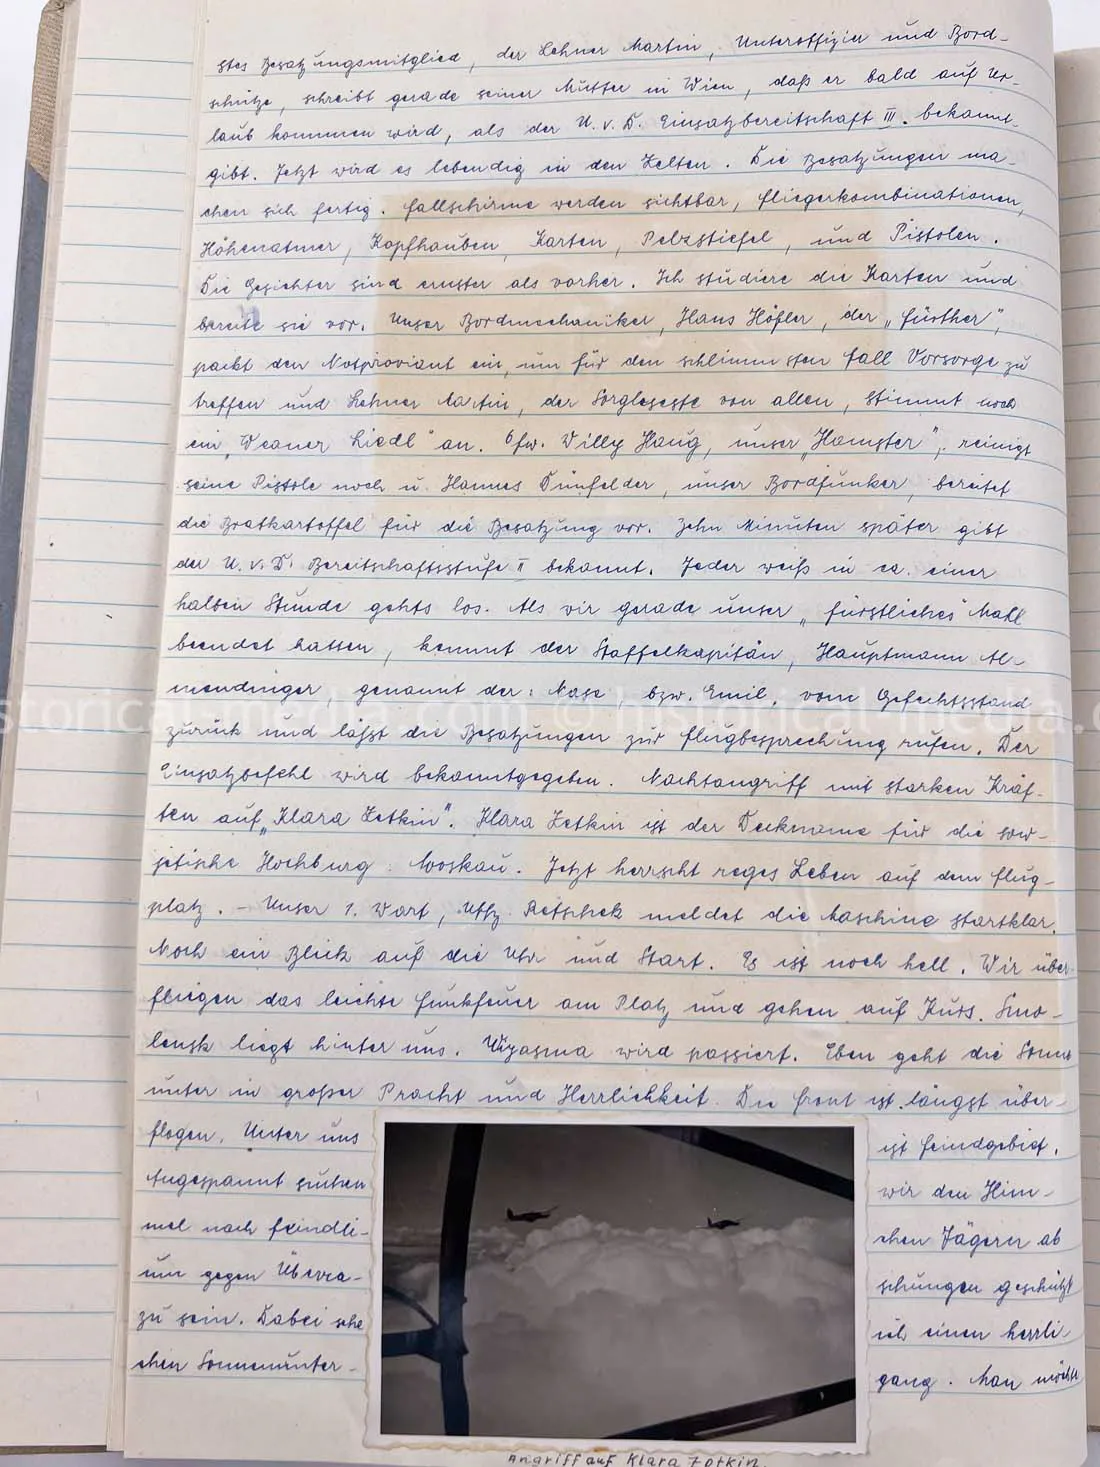 stes Besatzungsmitglied, der Lehner Martin, Unteroffizier und Bord-
schütze, schreibt gerade seiner Mutter in Wien, daß er bald auf Ur-
laub kommen wird, als der U.v.D. Einsatzbereitschaft III. bekannt-
gibt. Jetzt wird es lebendig in den Zelten. Die Besatzungen ma-
chen sich fertig. Fallschirme werden sichtbar, Fliegerkombinationen,
Höhenatmer, Kopfhauben, Karten, Pelzstiefel, und Pistolen.
Die Gesichter sind ernster als vorher. Ich studiere die Karten und
bereite sie vor. Unser Bordmechaniker, Hans Höfler, der „Fürther",
packt den Notproviant ein, um für den schlimmsten Fall Vorsorge zu
treffen und Lehner Martin, der Sorgloseste von allen, stimmt noch
ein „Weaner Liedl" an. Ofw. Willy Haug, unser „Hamster", reinigt
seine Pistole noch u. Hannes Dünfelder, unser Bordfunker, bereitet
die Bratkartoffel für die Besatzung vor. Zehn Minuten später gibt
der U.v.D. Bereitschaftsstufe II bekannt. Jeder weiß in ca. einer
halben Stunde gehts los. Als wir gerade unser „fürstliches" Mahl
beendet hatten, kommt der Staffelkapitän, Hauptmann Al-
mendinger, genannt der: Nase, bzw. Emil, vom Gefechtsstand
zurück und läßt die Besatzungen zur Flugbesprechung rufen. Der
Einsatzbefehl wird bekanntgegeben. Nachtangriff mit starken Kräf-
ten auf „Klara Zetkin". Klara Zetkin ist der Deckname für die sow-
jetische Hochburg: Moskau. Jetzt herrscht reges Leben auf dem Flug-
platz. – Unser 1. Wart, Uffz. Retschek meldet die Maschine startklar.
Noch ein Blick auf die Uhr und Start. Es ist noch hell. Wir über-
fliegen das leichte Funkfeuer am Platz und gehen auf Kurs. Smo-
lensk liegt hinter uns. Wjasma wird passiert. Eben geht die Sonne
unter in großer Pracht und Herrlichkeit. Die Front ist längst über-
flogen. Unter uns ist Feindgebiet.
Angespannt suchen wir den Him-
mel nach feindli- chen Jägern ab
um gegen Überra- schungen geschützt
zu sein. Dabei sehe ich einen herrli-
chen Sonnenunter- gang. Man möchte
Angriff auf Klara Zetkin.
historical-media.com © historical-media.com